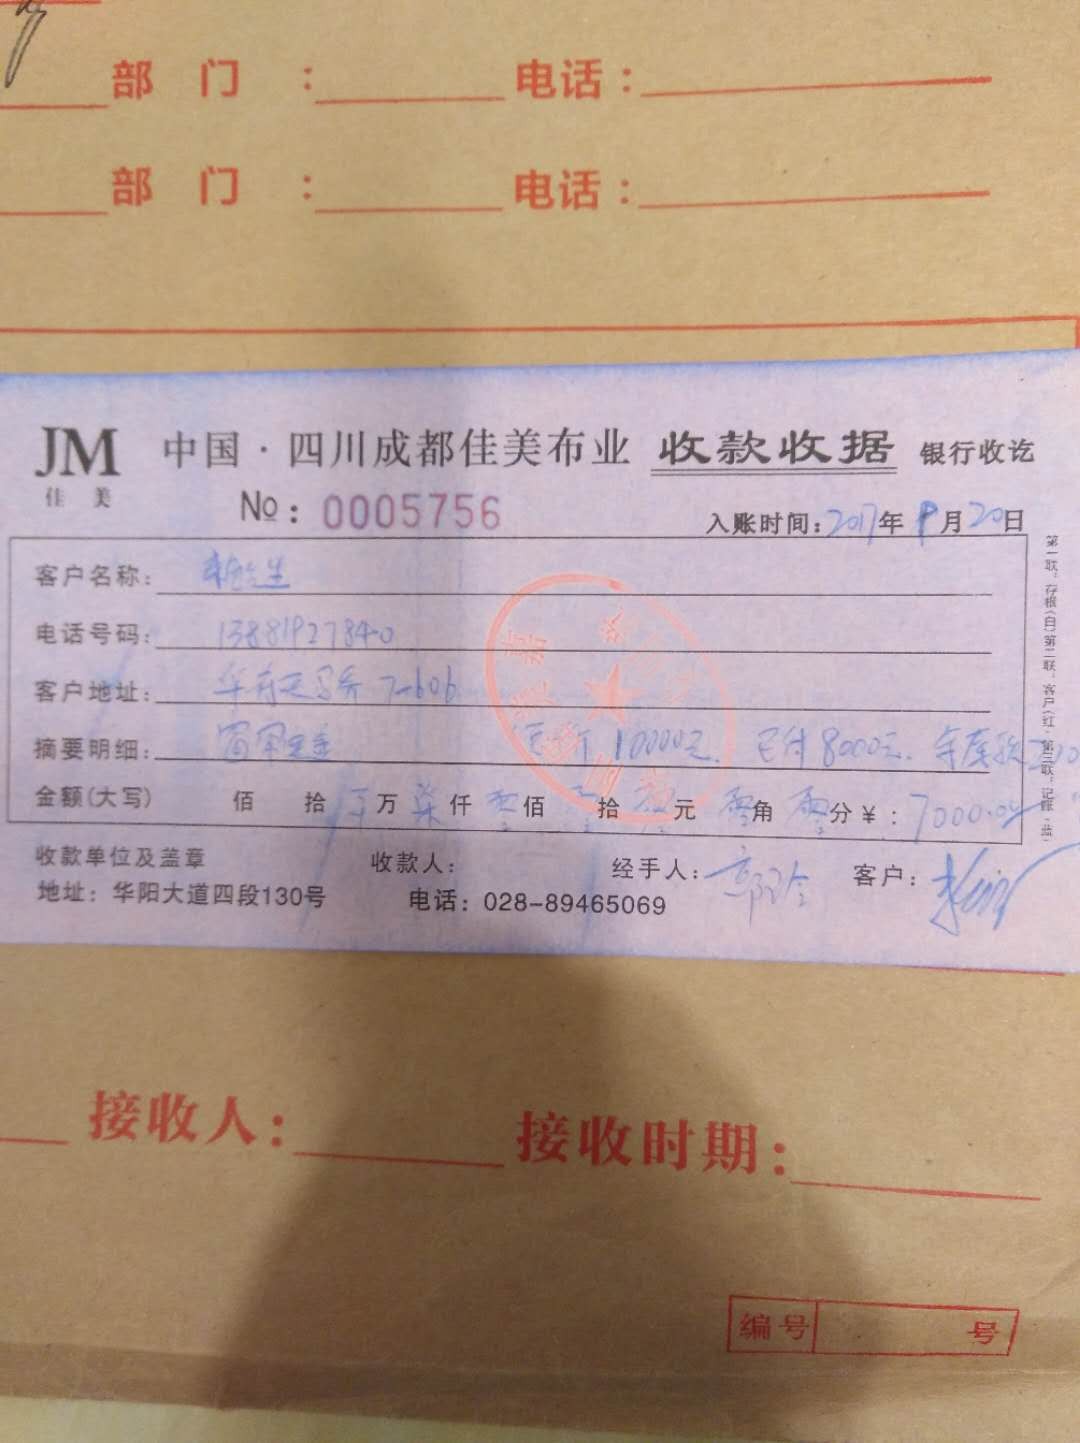 部 门 : 电话：
部 门 : 电话：
JM 中国·四川成都佳美布业 收款收据 银行收讫
佳 美
№: 0005756
入账时间:2017年 月20日
客户名称:
电话号码: 13881927840
客户地址: 7-606
摘要明细: 10000元. 已付8000元.
金额(大写) 佰 拾 万柒仟零佰 拾 元零角零分￥: 7000.00
第一联：存根(白)第二联：客户(红)第三联：记账(蓝)
收款单位及盖章 收款人: 经手人: 客户:
地址: 华阳大道四段130号 电话: 028-89465069
接收人: 接收时期:
编号 号